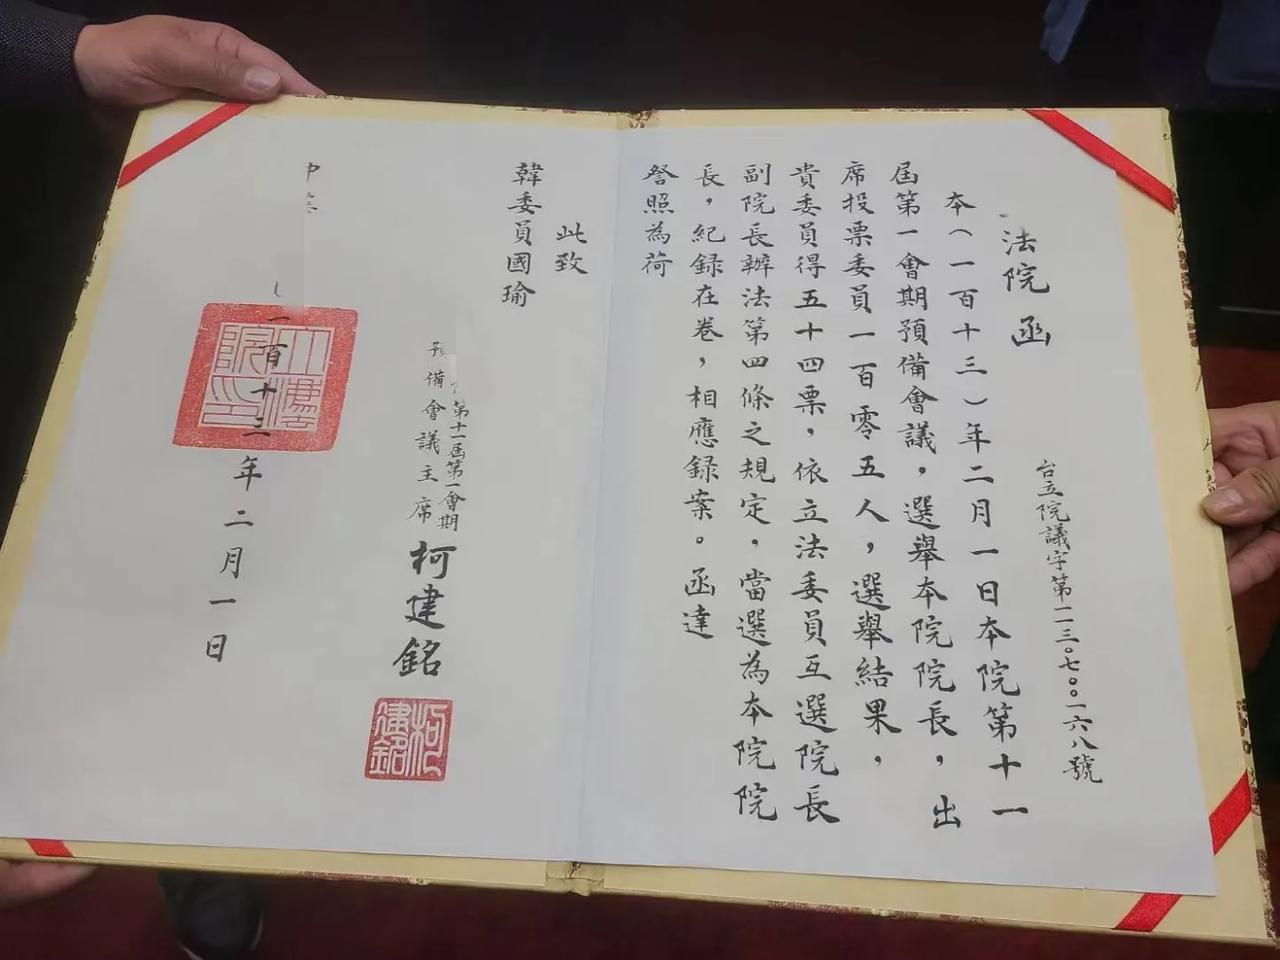 法院函
台立院議字第一一三○七○○一六八號
本（一百十三）年二月一日本院第十一
屆第一會期預備會議，選舉本院院長，出
席投票委員一百零五人，選舉結果，
貴委員得五十四票，依立法委員互選院長
副院長辦法第四條之規定，當選為本院院
長，紀録在卷，相應録案。函達
詧照為荷
此致
韓委員國瑜
第十一屆第一會期
預備會議主席 柯建銘
柯建銘
中
一百十三年二月一日
立法院印